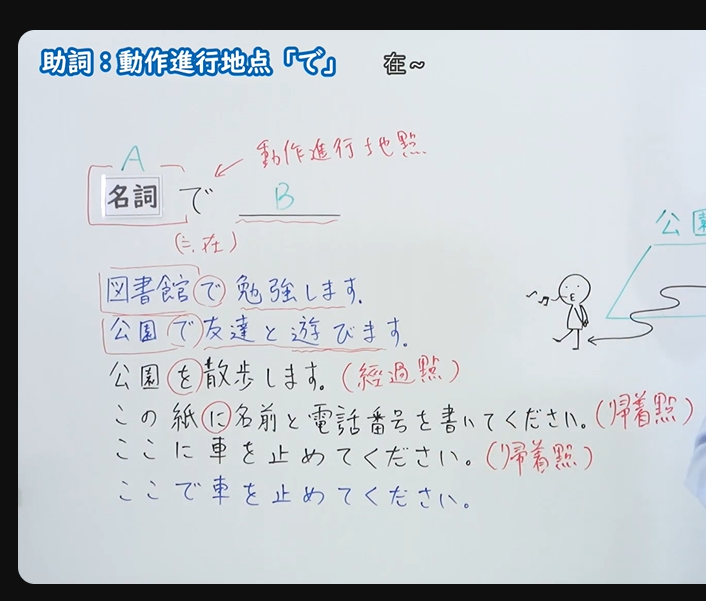 助詞：動作進行地点「で」 在~
動作進行地點
A
名詞 で B
(≒在)
公園
図書館で勉強します。
公園で友達と遊びます。
公園を散歩します。(經過點)
この紙に名前と電話番号を書いてください。(帰着點)
ここに車を止めてください。(帰着點)
ここで車を止めてください。